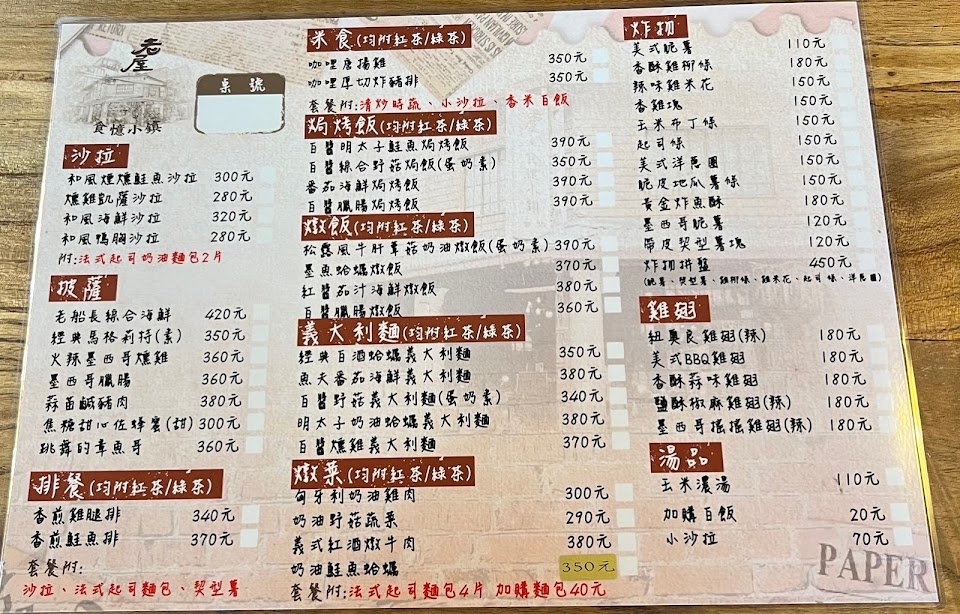 元屋
食憶小鎮
桌號
沙拉
和風煙燻鮭魚沙拉 300元
燻雞凱薩沙拉 280元
和風海鮮沙拉 320元
和風鴨胸沙拉 280元
附:法式起司奶油麵包2片
披薩
老船長綜合海鮮 420元
經典馬格莉特(素) 350元
火辣墨西哥燻雞 360元
墨西哥臘腸 360元
蒜苗鹹豬肉 380元
焦糖甜心佐蜂蜜(甜) 300元
跳舞的章魚哥 360元
排餐(均附紅茶/綠茶)
香煎雞腿排 340元
香煎鮭魚排 370元
套餐附:
沙拉、法式起司麵包、契型薯
米食(均附紅茶/綠茶)
咖哩唐揚雞 350元
咖哩厚切炸豬排 350元
套餐附:清炒時蔬、小沙拉、香米白飯
焗烤飯(均附紅茶/綠茶)
白醬明太子鮭魚焗烤飯 390元
白醬綜合野菇焗飯(蛋奶素) 350元
番茄海鮮焗烤飯 390元
白醬臘腸焗烤飯 390元
燉飯(均附紅茶/綠茶)
松露風牛肝蕈菇奶油燉飯(蛋奶素) 390元
墨魚蛤蠣燉飯 370元
紅醬茄汁海鮮燉飯 380元
白醬臘腸燉飯 360元
義大利麵(均附紅茶/綠茶)
經典白酒蛤蠣義大利麵 350元
漁夫番茄海鮮義大利麵 380元
白醬野菇義大利麵(蛋奶素) 340元
明太子奶油蛤蠣義大利麵 380元
白醬燻雞義大利麵 370元
燉菜(均附紅茶/綠茶)
匈牙利奶油雞肉 300元
奶油野菇蔬菜 290元
義式紅酒燉牛肉 380元
奶油鮭魚蛤蠣 350元
套餐附:法式起司麵包4片 加購麵包40元
炸物
美式脆薯 110元
香酥雞柳條 180元
辣味雞米花 150元
香雞塊 150元
玉米布丁條 150元
起司條 150元
美式洋蔥圈 150元
脆皮地瓜薯條 150元
黃金炸魚酥 180元
墨西哥脆薯 120元
帶皮契型薯塊 120元
炸物拼盤 450元
(脆薯、契型薯、雞柳條、雞米花、起司條、洋蔥圈)
雞翅
紐奧良雞翅(辣) 180元
美式BBQ雞翅 180元
香酥蒜味雞翅 180元
鹽酥椒麻雞翅(辣) 180元
墨西哥搖搖雞翅(辣) 180元
湯品
玉米濃湯 110元
加購白飯 20元
小沙拉 70元
PAPER